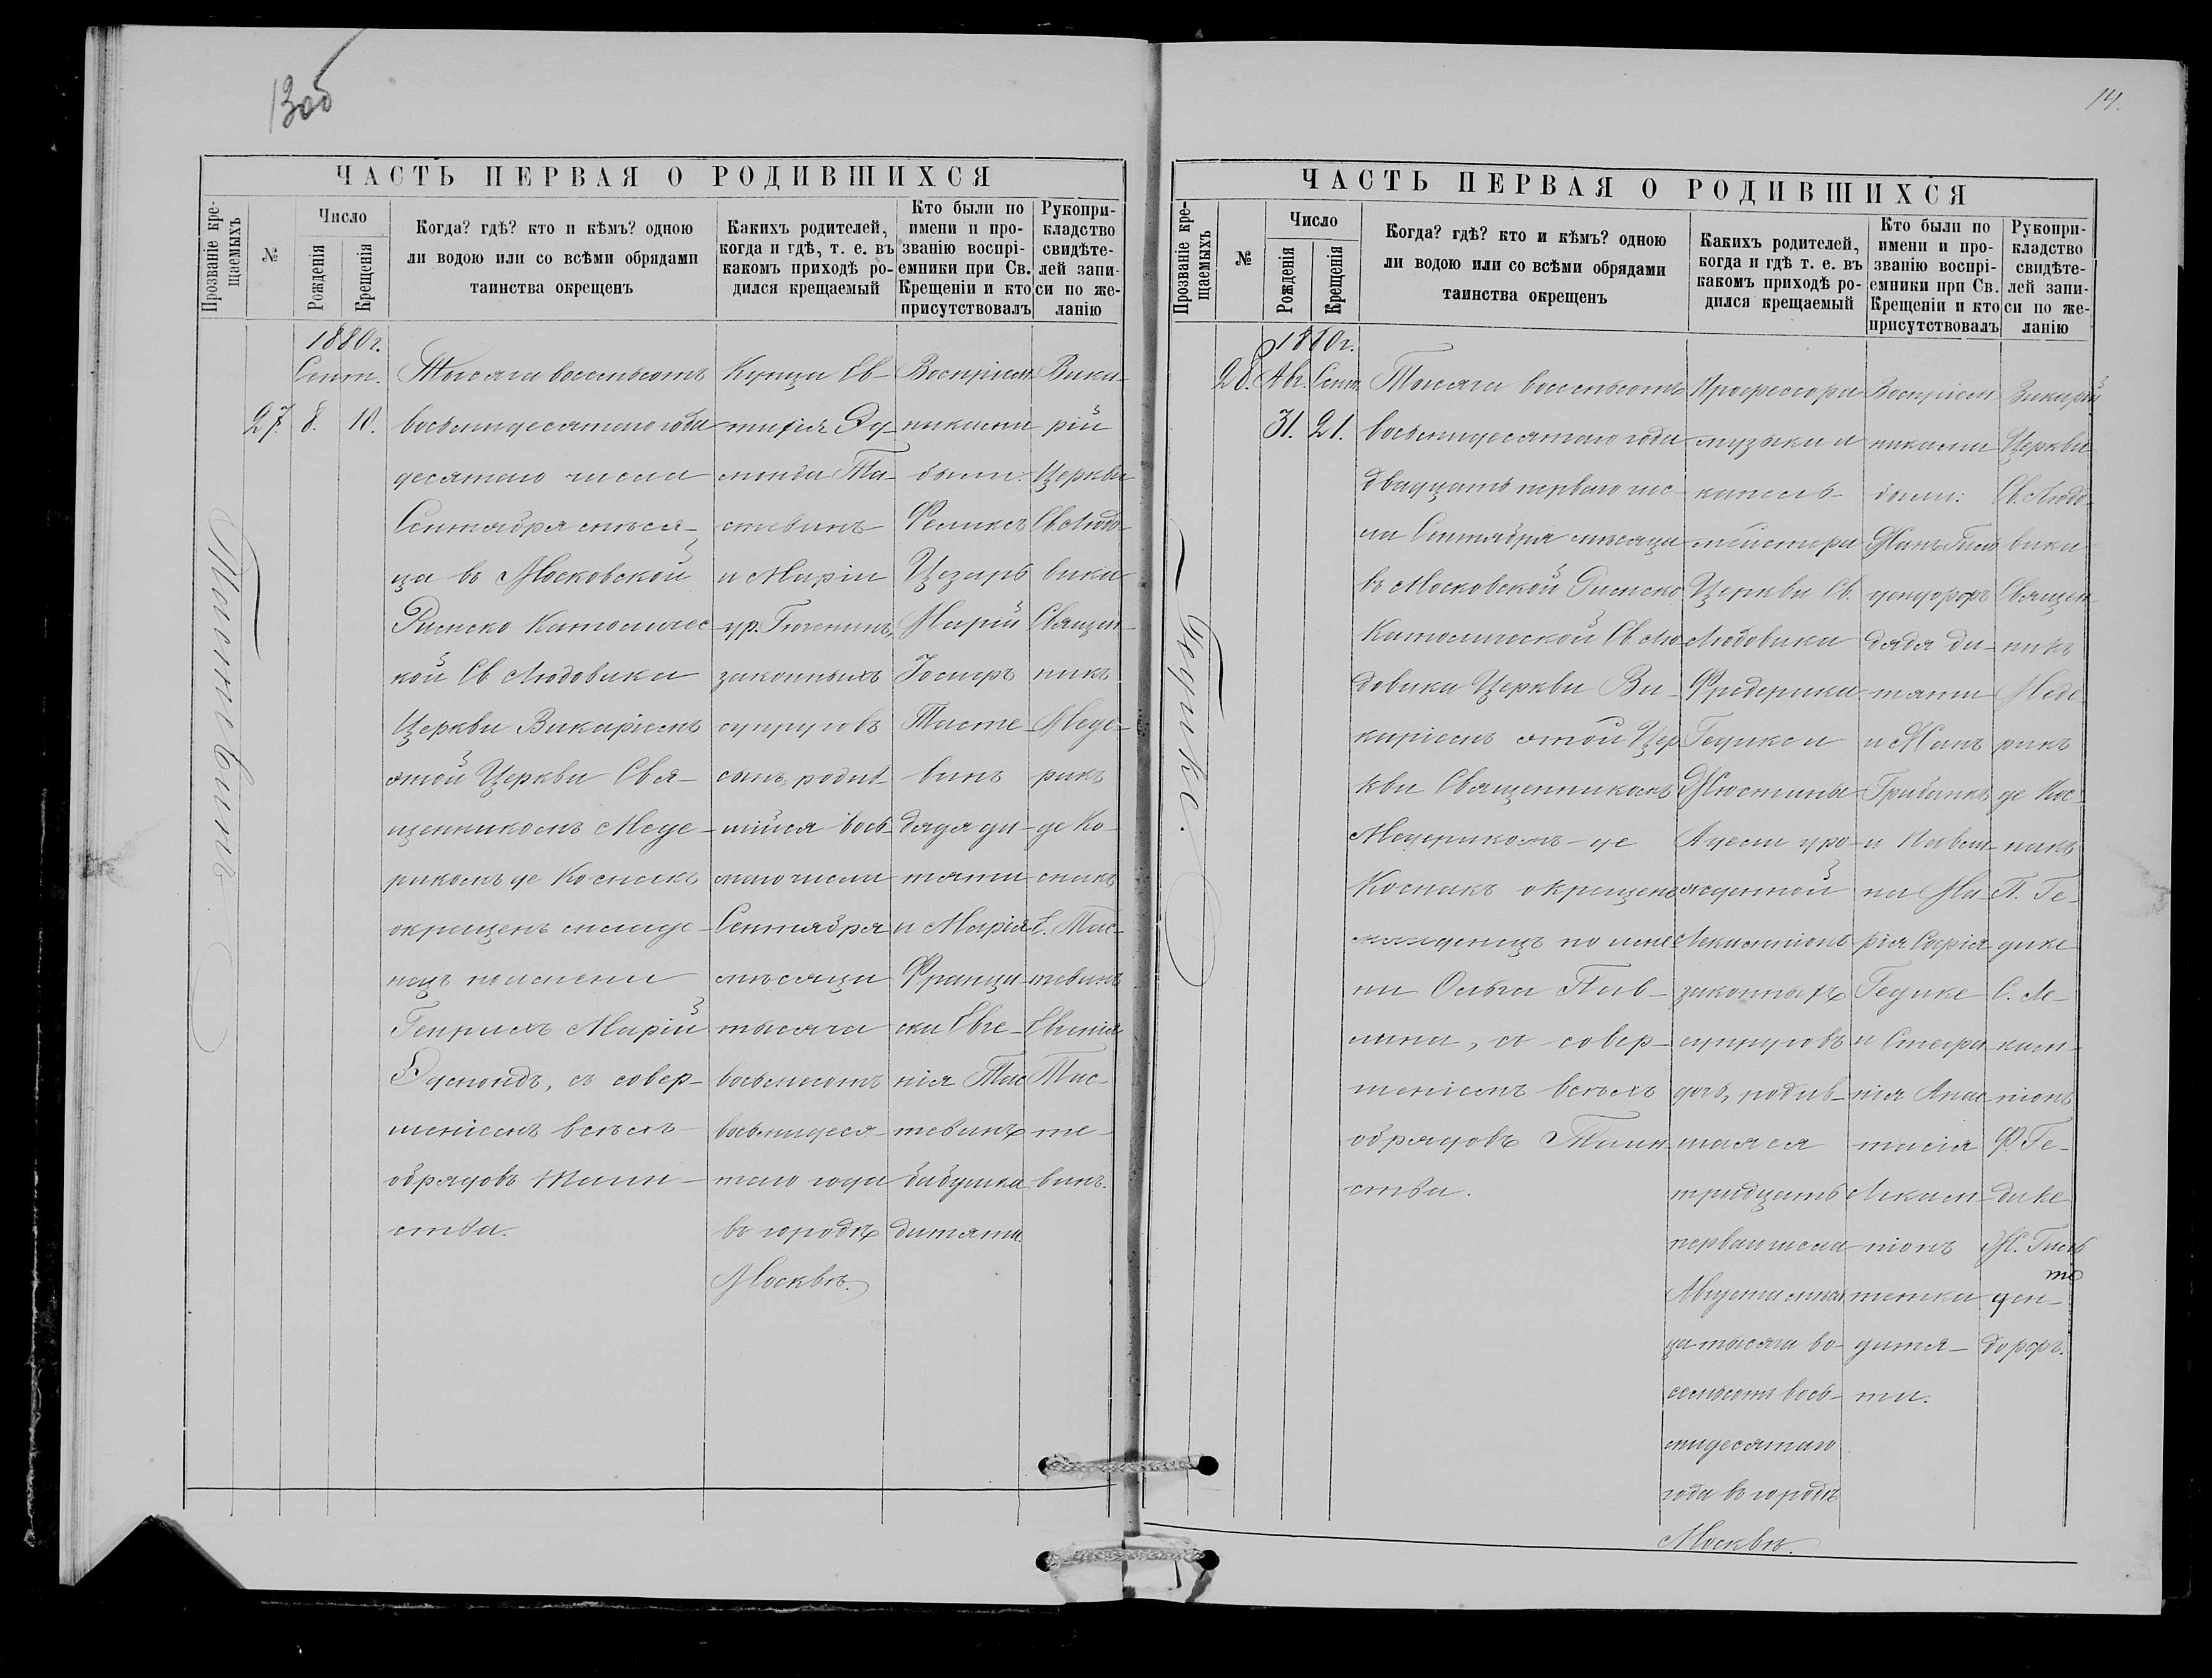 13об
ЧАСТЬ ПЕРВАЯ О РОДИВШИХСЯ
Прозваніе кре-
щаемыхъ
№
Число
Рожденія
Крещенія
Когда? гдѣ? кто и кѣмъ? одною
ли водою или со всѣми обрядами
таинства окрещенъ
Какихъ родителей,
когда и гдѣ, т. е. въ
какомъ приходѣ ро-
дился крещаемый
Кто были по
имени и про-
званію воспрі-
емники при Св.
Крещеніи и кто
присутствовалъ
Рукопри-
кладство
свидѣте-
лей запи-
си по же-
ланію
Тастевинъ
1880г.
Сент.
27. 8. 10.
Тысяча восемьсотъ
восьмидесятаго года
десятаго числа
Сентября мѣся-
ца въ Московской
Римско Католичес-
кой Св Людовика
Церкви Викаріемъ
этой Церкви Свя-
щенникомъ Меде-
рикомъ де Коснакъ
окрещенъ младе-
нецъ по имени
Генрихъ Марій
Эдмондъ, съ совер-
шеніемъ всѣхъ
обрядовъ таин-
ства.
Купца Ев-
тихія Эд-
монда Та-
стевинъ
и Маріи
ур.
законныхъ
супруговъ
сынъ, родив-
шійся вось-
маго числа
Сентября
мѣсяца
тысяча
восьмисотъ
восьмидеся-
таго года
въ городѣ
Москвѣ.
Воспріем-
никами
были:
Феликсъ
Цезарь
Марій
Іосифъ
Тасте-
винъ
дядя ди-
тяти
и Марія
Франци-
ска Евге-
нія Тас-
тевинъ
бабушка
дитяти.
Вика-
рій
Церкви
Св. Людо-
вика
Священ-
никъ
Меде-
рикъ
де Ко-
снакъ
Е. Тас-
тевинъ
Евгенія
Тас-
те-
винъ.
14.
ЧАСТЬ ПЕРВАЯ О РОДИВШИХСЯ
Прозваніе кре-
щаемыхъ
№
Число
Рожденія
Крещенія
Когда? гдѣ? кто и кѣмъ? одною
ли водою или со всѣми обрядами
таинства окрещенъ
Какихъ родителей,
когда и гдѣ т. е. въ
какомъ приходѣ ро-
дился крещаемый
Кто были по
имени и про-
званію воспрі-
емники при Св.
Крещеніи и кто
присутствовалъ
Рукопри-
кладство
свидѣте-
лей запи-
си по же-
ланію
Гедике.
1880г.
28. Авг. Сент.
31. 21.
Тысяча восемьсотъ
восьмидесятаго года
двадцать перваго чис-
ла Сентября мѣсяца
въ Московской Римско
Католической Св Лю-
довика Церкви Ви-
каріемъ этой Цер-
кви Священникомъ
Медерикомъ де
Коснакъ окрещенъ
младенецъ по име-
ни Ольга Пав-
лина, съ совер-
шеніемъ всѣхъ
обрядовъ Таин-
ства.
Профессора
музыки и
капель-
мейстера
Церкви Св.
Людовика
Фредерика
Гедике и
Жюстины
Адели уро-
жденной
законныхъ
супруговъ
дочь, родив-
шаяся
тридцать
перваго числа
Августа мѣся-
ца тысяча во-
семьсотъ вось-
мидесятаго
года въ городѣ
Москвѣ.
Воспріем-
никами
были:
дядя ди-
тяти
и Павли-
на Ма-
рія Софія
Гедике
и Стефа-
нія Анас-
тасія
тетки
дитя-
ти.
Викарій
Церкви
Св. Людо-
вика
Священ-
никъ
Меде-
рикъ
де Кос-
накъ
П. Ге-
дике
Ф. Ге-
дике